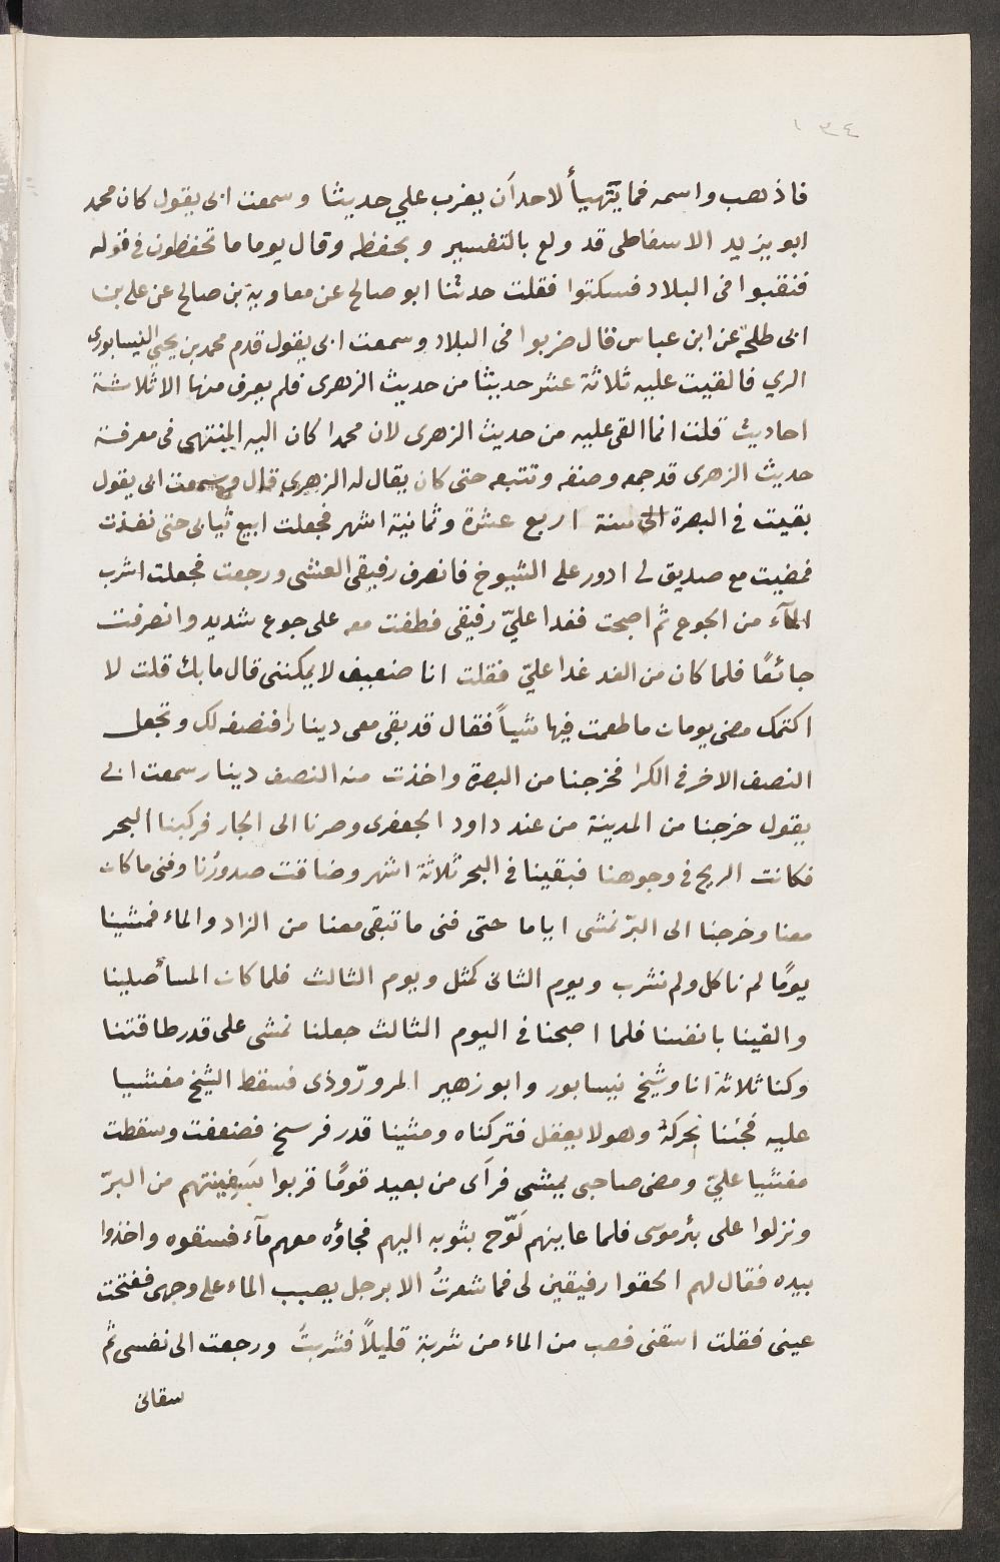 ١٣٤
فاذهب واسمه فما يتهيأ لاحد أن يغرب علي حديثا وسمعت ابى يقول كان محمد
ابو يزيد الاسفاطى قد ولع بالتفسير وبحفظه وقال يوما ما تحفظون فى قوله
فنقبوا فى البلاد فسكتوا فقلت حدثنا ابو صالح عن معاوية بن صالح عن على بن
ابى طلحة عن ابن عباس قال ضربوا فى البلاد وسمعت ابى يقول قدم محمد بن يحيى النيسابورى
الري فالقيت عليه ثلاثة عشر حديثا من حديث الزهرى فلم يعرف منها الا ثلاثة
احاديث قلت انما القى عليه من حديث الزهرى لان محمدا كان اليه المنتهى فى معرفة
حديث الزهرى قد جمعه وصنفه وتتبعه حتى كان يقال له الزهرى قال وسمعت ابى يقول
بقيت فى البصرة سنة اربع عشرة وثمانية اشهر فجعلت ابيع ثيابى حتى نفذت
فمضيت مع صديق لى ادور على الشيوخ فانصرف رفيقى العشى ورجعت فجعلت اشرب
المآء من الجوع ثم اصبحت فغدا عليّ رفيقى فطفت معه على جوع شديد وانصرفت
جائعًا فلما كان من الغد غدا عليّ فقلت انا ضعيف لا يمكننى قال ما بك قلت لا
اكتمك مضى يومان ما طعمت فيها شيأً فقال قد بقى معى دينار فنصفه لك وتجعل
النصف الاخر فى الكرا فخرجنا من البصرة واخذت منه النصف دينار سمعت ابى
يقول خرجنا من المدينة من عند داود الجعفرى وصرنا الى الجار فركبنا البحر
فكانت الريح فى وجوهنا فبقينا فى البحر ثلاثة اشهر وضاقت صدورنا وفنى ما كان
معنا وخرجنا الى البرّ نمشى اياما حتى فنى ما تبقى معنا من الزاد والماء فمشينا
يومًا لم ناكل ولم نشرب ويوم الثانى كمثل ويوم الثالث فلما كان المسأ صلينا
والقينا بانفسنا فلما اصبحنا فى اليوم الثالث جعلنا نمشى على قدر طاقتنا
وكنا ثلاثة انا وشيخ نيسابور وابو زهير المرورّوذى فسقط الشيخ مغشيا
عليه فجئنا نحركهُ وهو لا يعقل فتركناه ومشينا قدر فرسخ فضعفت وسقطت
مغشيا عليّ ومضى صاحبى يمشى فرآى من بعيد قومًا قربوا سَفينتهم من البرّ
ونزلوا على بئر موسى فلما عاينهم لَوّح بثوبه اليهم فجاؤه معهم مآء فسقوه واخذوا
بيده فقال لهم الحقوا رفيقين لى فما شعرتُ الا برجل يصبب الماء على وجهى ففتحت
عينى فقلت اسقنى فصب من الماء من شربة قليلاً فشربتُ ورجعت الى نفسى ثم
سقانى